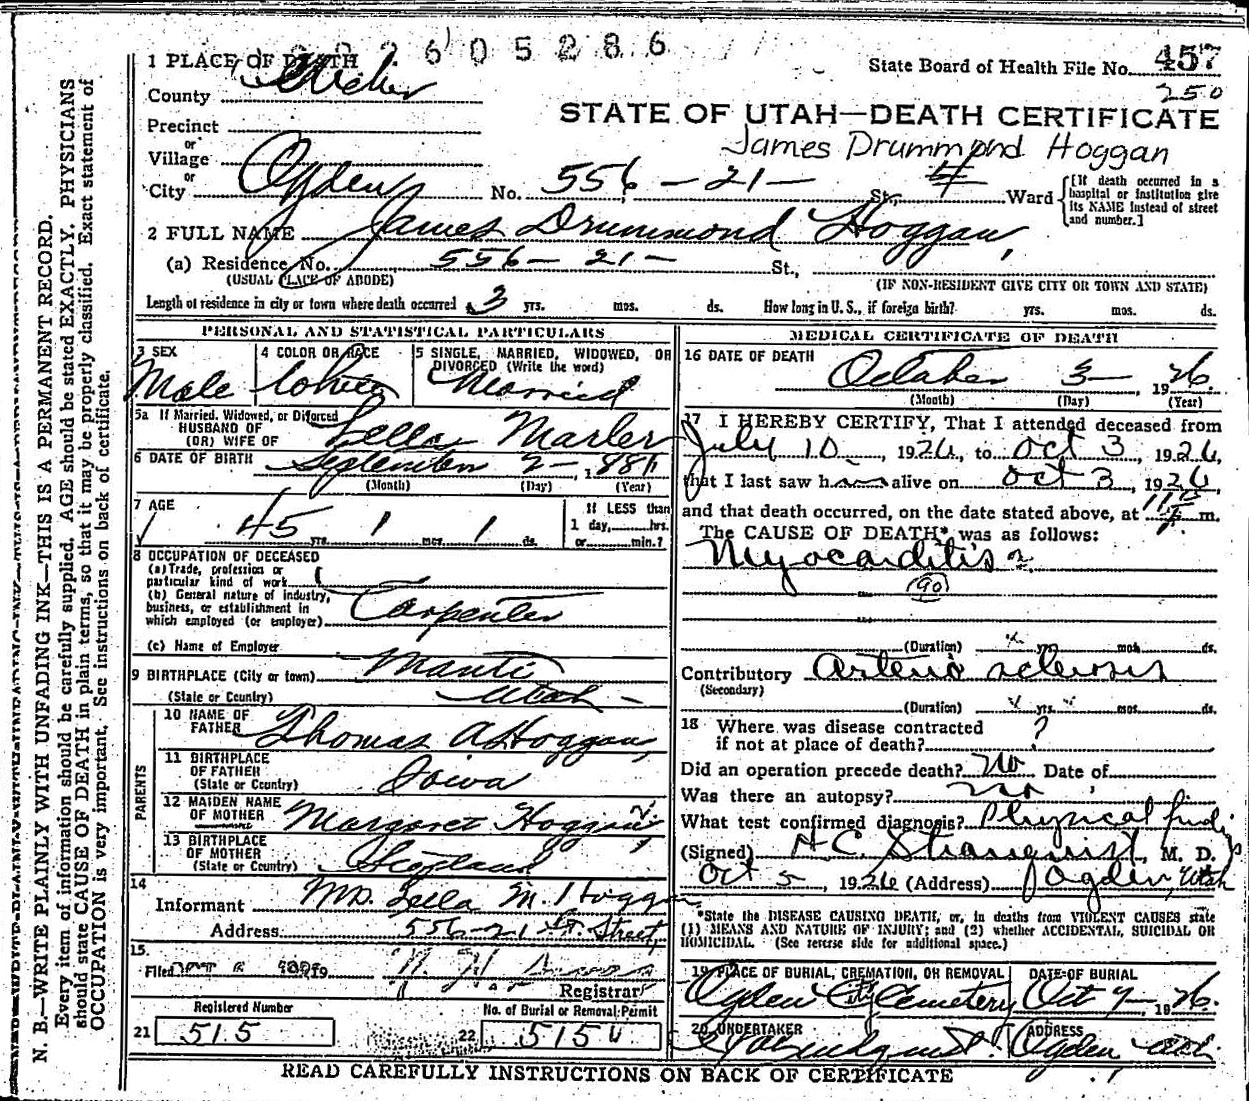 2605286
1 PLACE OF DEATH
State Board of Health File No. 457
250
County Weber
STATE OF UTAH—DEATH CERTIFICATE
Precinct
James Drummond Hoggan
or
Village
or
City Ogden No. 556 - 21 - St., 4 Ward
[If death occurred in a hospital or institution give its NAME instead of street and number.]
2 FULL NAME James Drummond Hoggan,
(a) Residence No. 556 - 21 - St.,
(USUAL PLACE OF ABODE) (IF NON-RESIDENT GIVE CITY OR TOWN AND STATE)
Length of residence in city or town where death occurred 3 yrs. mos. ds. How long in U. S., if foreign birth? yrs. mos. ds.
PERSONAL AND STATISTICAL PARTICULARS
3 SEX Male
4 COLOR OR RACE White
5 SINGLE, MARRIED, WIDOWED, OR DIVORCED (Write the word) Married
5a If Married, Widowed, or Divorced
HUSBAND OF
(OR) WIFE OF Lella Marler
6 DATE OF BIRTH September 2 -, 1881
(Month) (Day) (Year)
7 AGE 45 yrs. 1 mos. 1 ds.
If LESS than 1 day, hrs. or min.?
8 OCCUPATION OF DECEASED
(a) Trade, profession or particular kind of work
(b) General nature of industry, business, or establishment in which employed (or employer) Carpenter
(c) Name of Employer
9 BIRTHPLACE (City or town) Manti
(State or Country) Utah -
PARENTS
10 NAME OF FATHER Thomas A Hoggan,
11 BIRTHPLACE OF FATHER (State or Country) Iowa
12 MAIDEN NAME OF MOTHER Margaret Hoggan
13 BIRTHPLACE OF MOTHER (State or Country) Scotland
14
Informant Mrs. Lella M. Hoggan
Address 556-21 st. Street,
15.
Filed
Registrar
Registered Number
21 515
No. of Burial or Removal Permit
22
MEDICAL CERTIFICATE OF DEATH
16 DATE OF DEATH
October 3 - 1926.
(Month) (Day) (Year)
17 I HEREBY CERTIFY, That I attended deceased from
July 10, 1926, to Oct 3, 1926,
that I last saw h alive on Oct 3, 1926,
and that death occurred, on the date stated above, at m.
The CAUSE OF DEATH* was as follows:
Myocarditis
(90)
(Duration) yrs. mos. ds.
Contributory Arterio sclerosis
(Secondary)
(Duration) yrs. mos. ds.
18 Where was disease contracted
if not at place of death? ?
Did an operation precede death? No Date of
Was there an autopsy? no
What test confirmed diagnosis? Physical findings
(Signed) H C. Stranquist, M. D.
Oct 5, 1926 (Address) Ogden, Utah
*State the DISEASE CAUSING DEATH, or, in deaths from VIOLENT CAUSES state
(1) MEANS AND NATURE OF INJURY; and (2) whether ACCIDENTAL, SUICIDAL OR
HOMICIDAL. (See reverse side for additional space.)
19 PLACE OF BURIAL, CREMATION, OR REMOVAL DATE OF BURIAL
Ogden City Cemetery Oct 7 - 1926.
20 UNDERTAKER ADDRESS
Lindquist Ogden Utah
READ CAREFULLY INSTRUCTIONS ON BACK OF CERTIFICATE
N. B.—WRITE PLAINLY WITH UNFADING INK—THIS IS A PERMANENT RECORD.
Every item of information should be carefully supplied. AGE should be stated EXACTLY. PHYSICIANS
should state CAUSE OF DEATH in plain terms, so that it may be properly classified. Exact statement of
OCCUPATION is very important. See instructions on back of certificate.